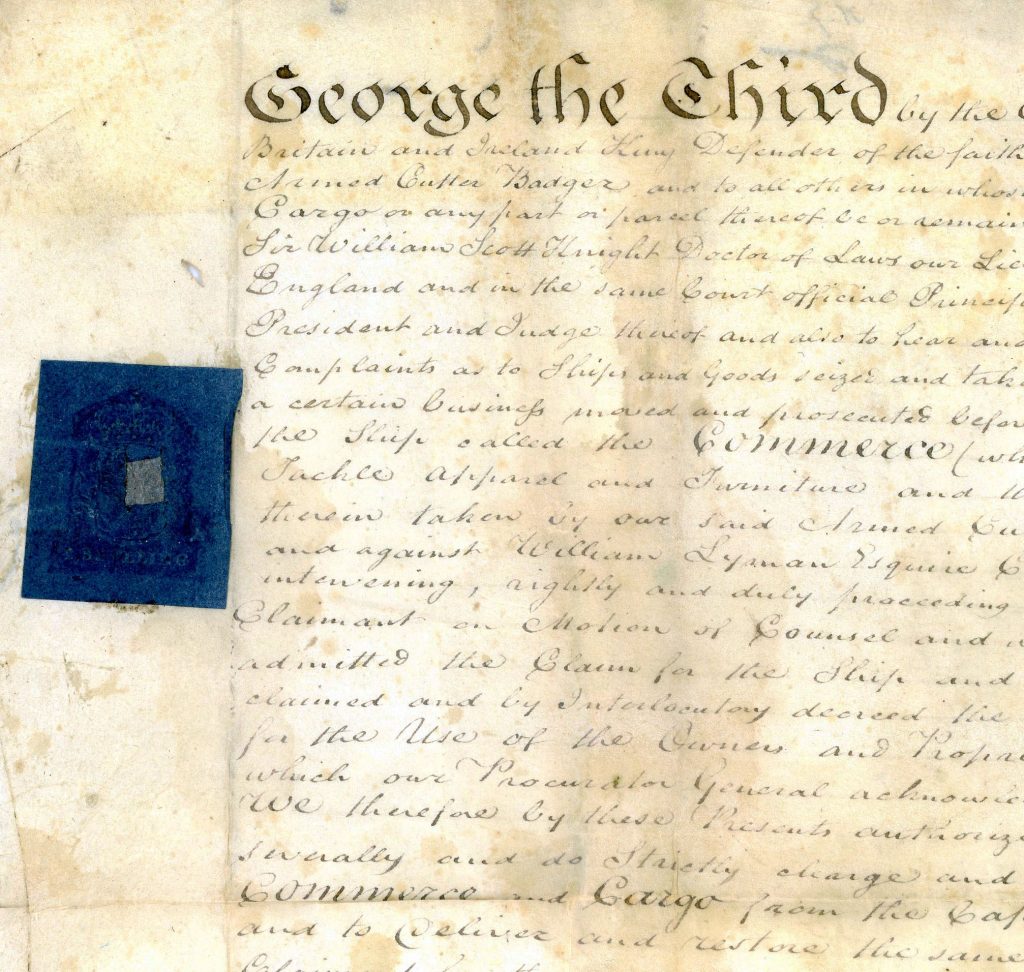 George the Third by the
Britain and Ireland King Defender of the faith
Armed Cutter Badger and to all others in whose
Cargo or any part or parcel thereof be or remain
Sir William Scott Knight Doctor of Laws our
England and in the same Court official
President and Judge thereof and also to hear and
Complaints as to Ships and Goods seized and
a certain business moved and prosecuted
the Ship called the Commerce
Tackle Apparel and Furniture and
therein taken by our said Armed
and against William Lyman Esquire
intervening, rightly and duly proceeding
Claimant on Motion of Counsel and
admitted the Claim for the Ship and
claimed and by Interlocutory decreed the
for the Use of the Owners and
which our Procurator General
We therefore by these Presents
severally and do Strictly charge and
Commerce and Cargo from the
and to Deliver and restore the same